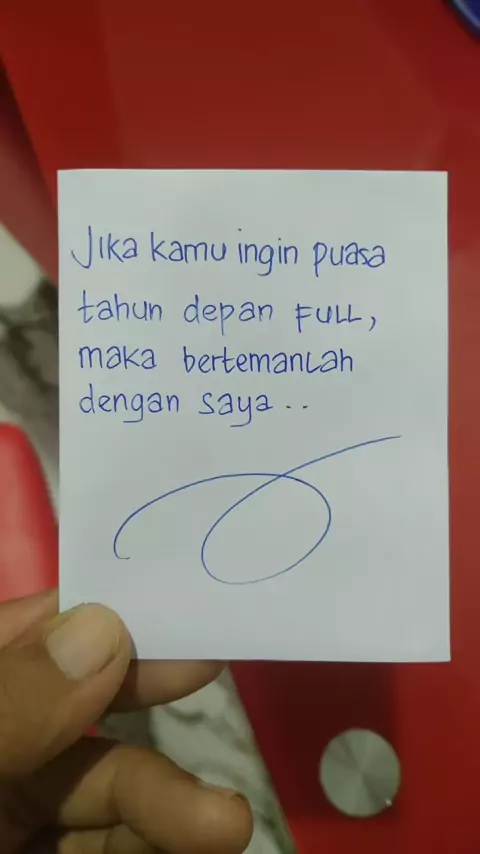 Jika kamu ingin puasa
tahun depan FULL,
maka bertemanlah
dengan saya..